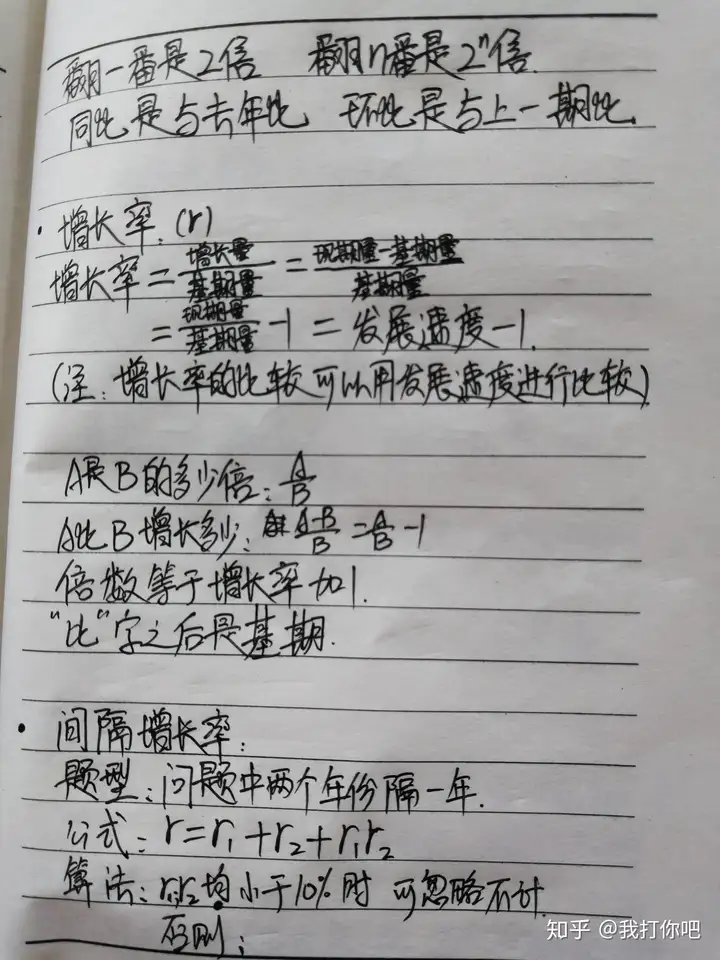 翻一番是2倍 翻n番是2ⁿ倍.
同比是与去年比 环比是与上一期比.
· 增长率:(r)
增长率=增长量/基期量=现期量-基期量/基期量
=现期量/基期量-1=发展速度-1.
(注:增长率的比较可以用发展速度进行比较)
A是B的多少倍:A/B
A比B增长多少:A-B/B=A/B-1
倍数等于增长率加1.
"比"字之后是基期.
· 间隔增长率:
题型:问题中两个年份隔一年.
公式:r=r₁+r₂+r₁r₂
算法:r₁r₂均小于10%时 可忽略不计.
否则:
知乎 @我打你吧